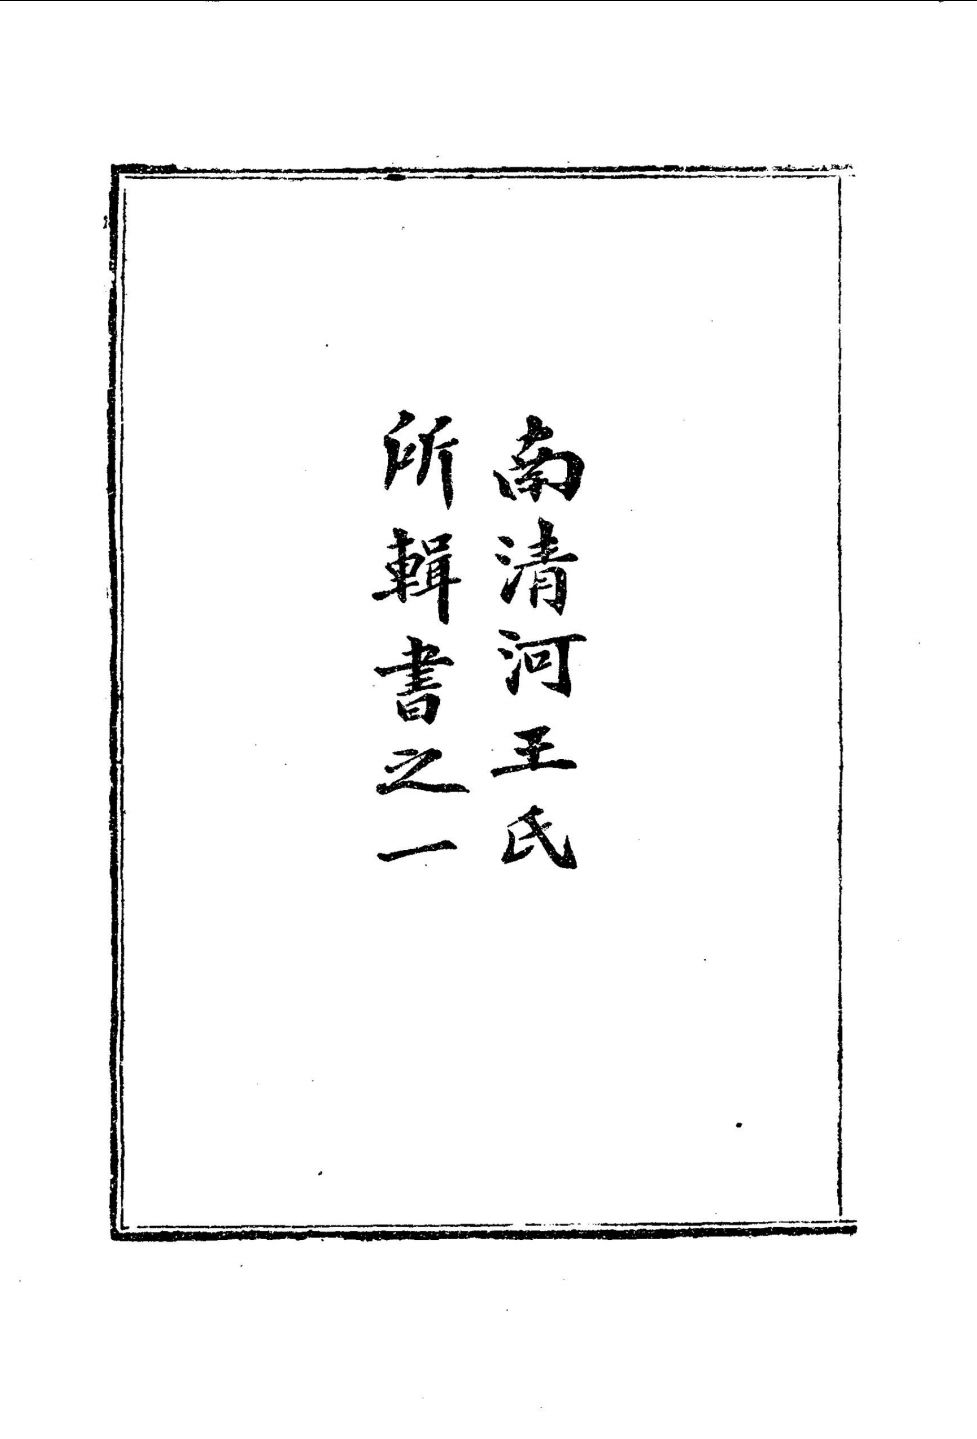 南清河王氏
所輯書之一